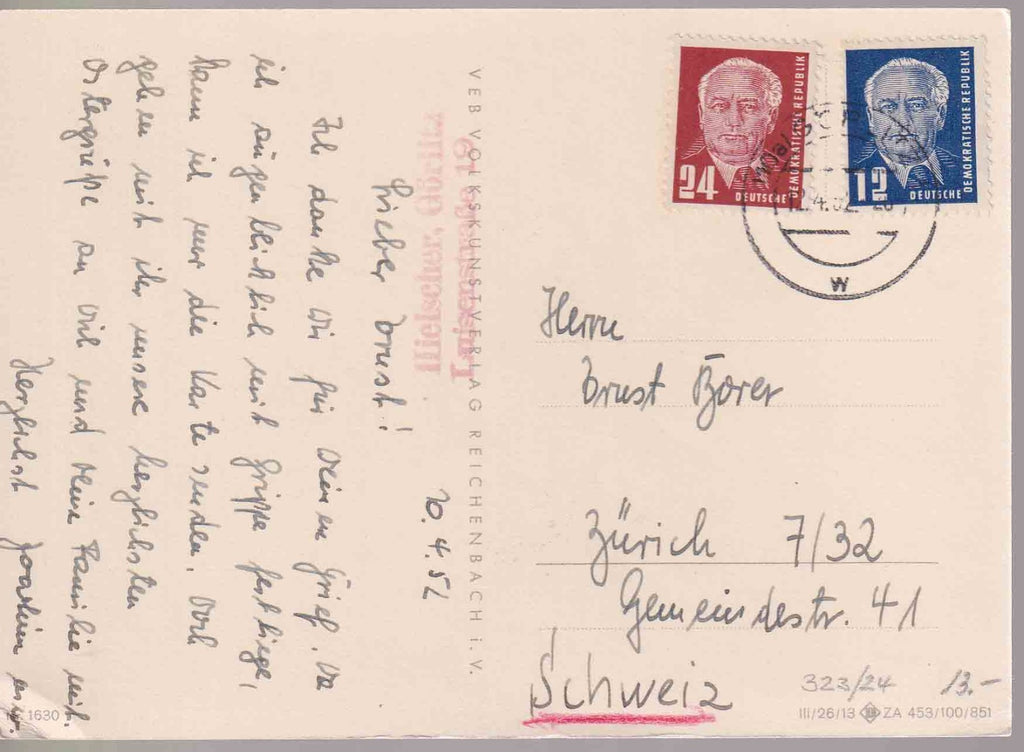 10. 4. 52
Lieber Ernst!
Ich danke Dir für Deinen Brief. Da
ich augenblicklich mit Grippe festliege,
kann ich nur die Karte senden. Doch
gehen mit ihr unsere herzlichsten
Ostergrüße an Dich und Deine Familie mit.
Herzlichst Joachim
Mielscher, Görlitz
Luisenstraße 19
VEB VOLKSKUNSTVERLAG REICHENBACH i. V.
24
DEUTSCHE DEMOKRATISCHE REPUBLIK
12
DEUTSCHE DEMOKRATISCHE REPUBLIK
12.4.52
w
Herrn
Ernst Borer
Zürich 7/32
Gemeindestr. 41
Schweiz
323/24 13.-
III/26/13 ZA 453/100/851
1630